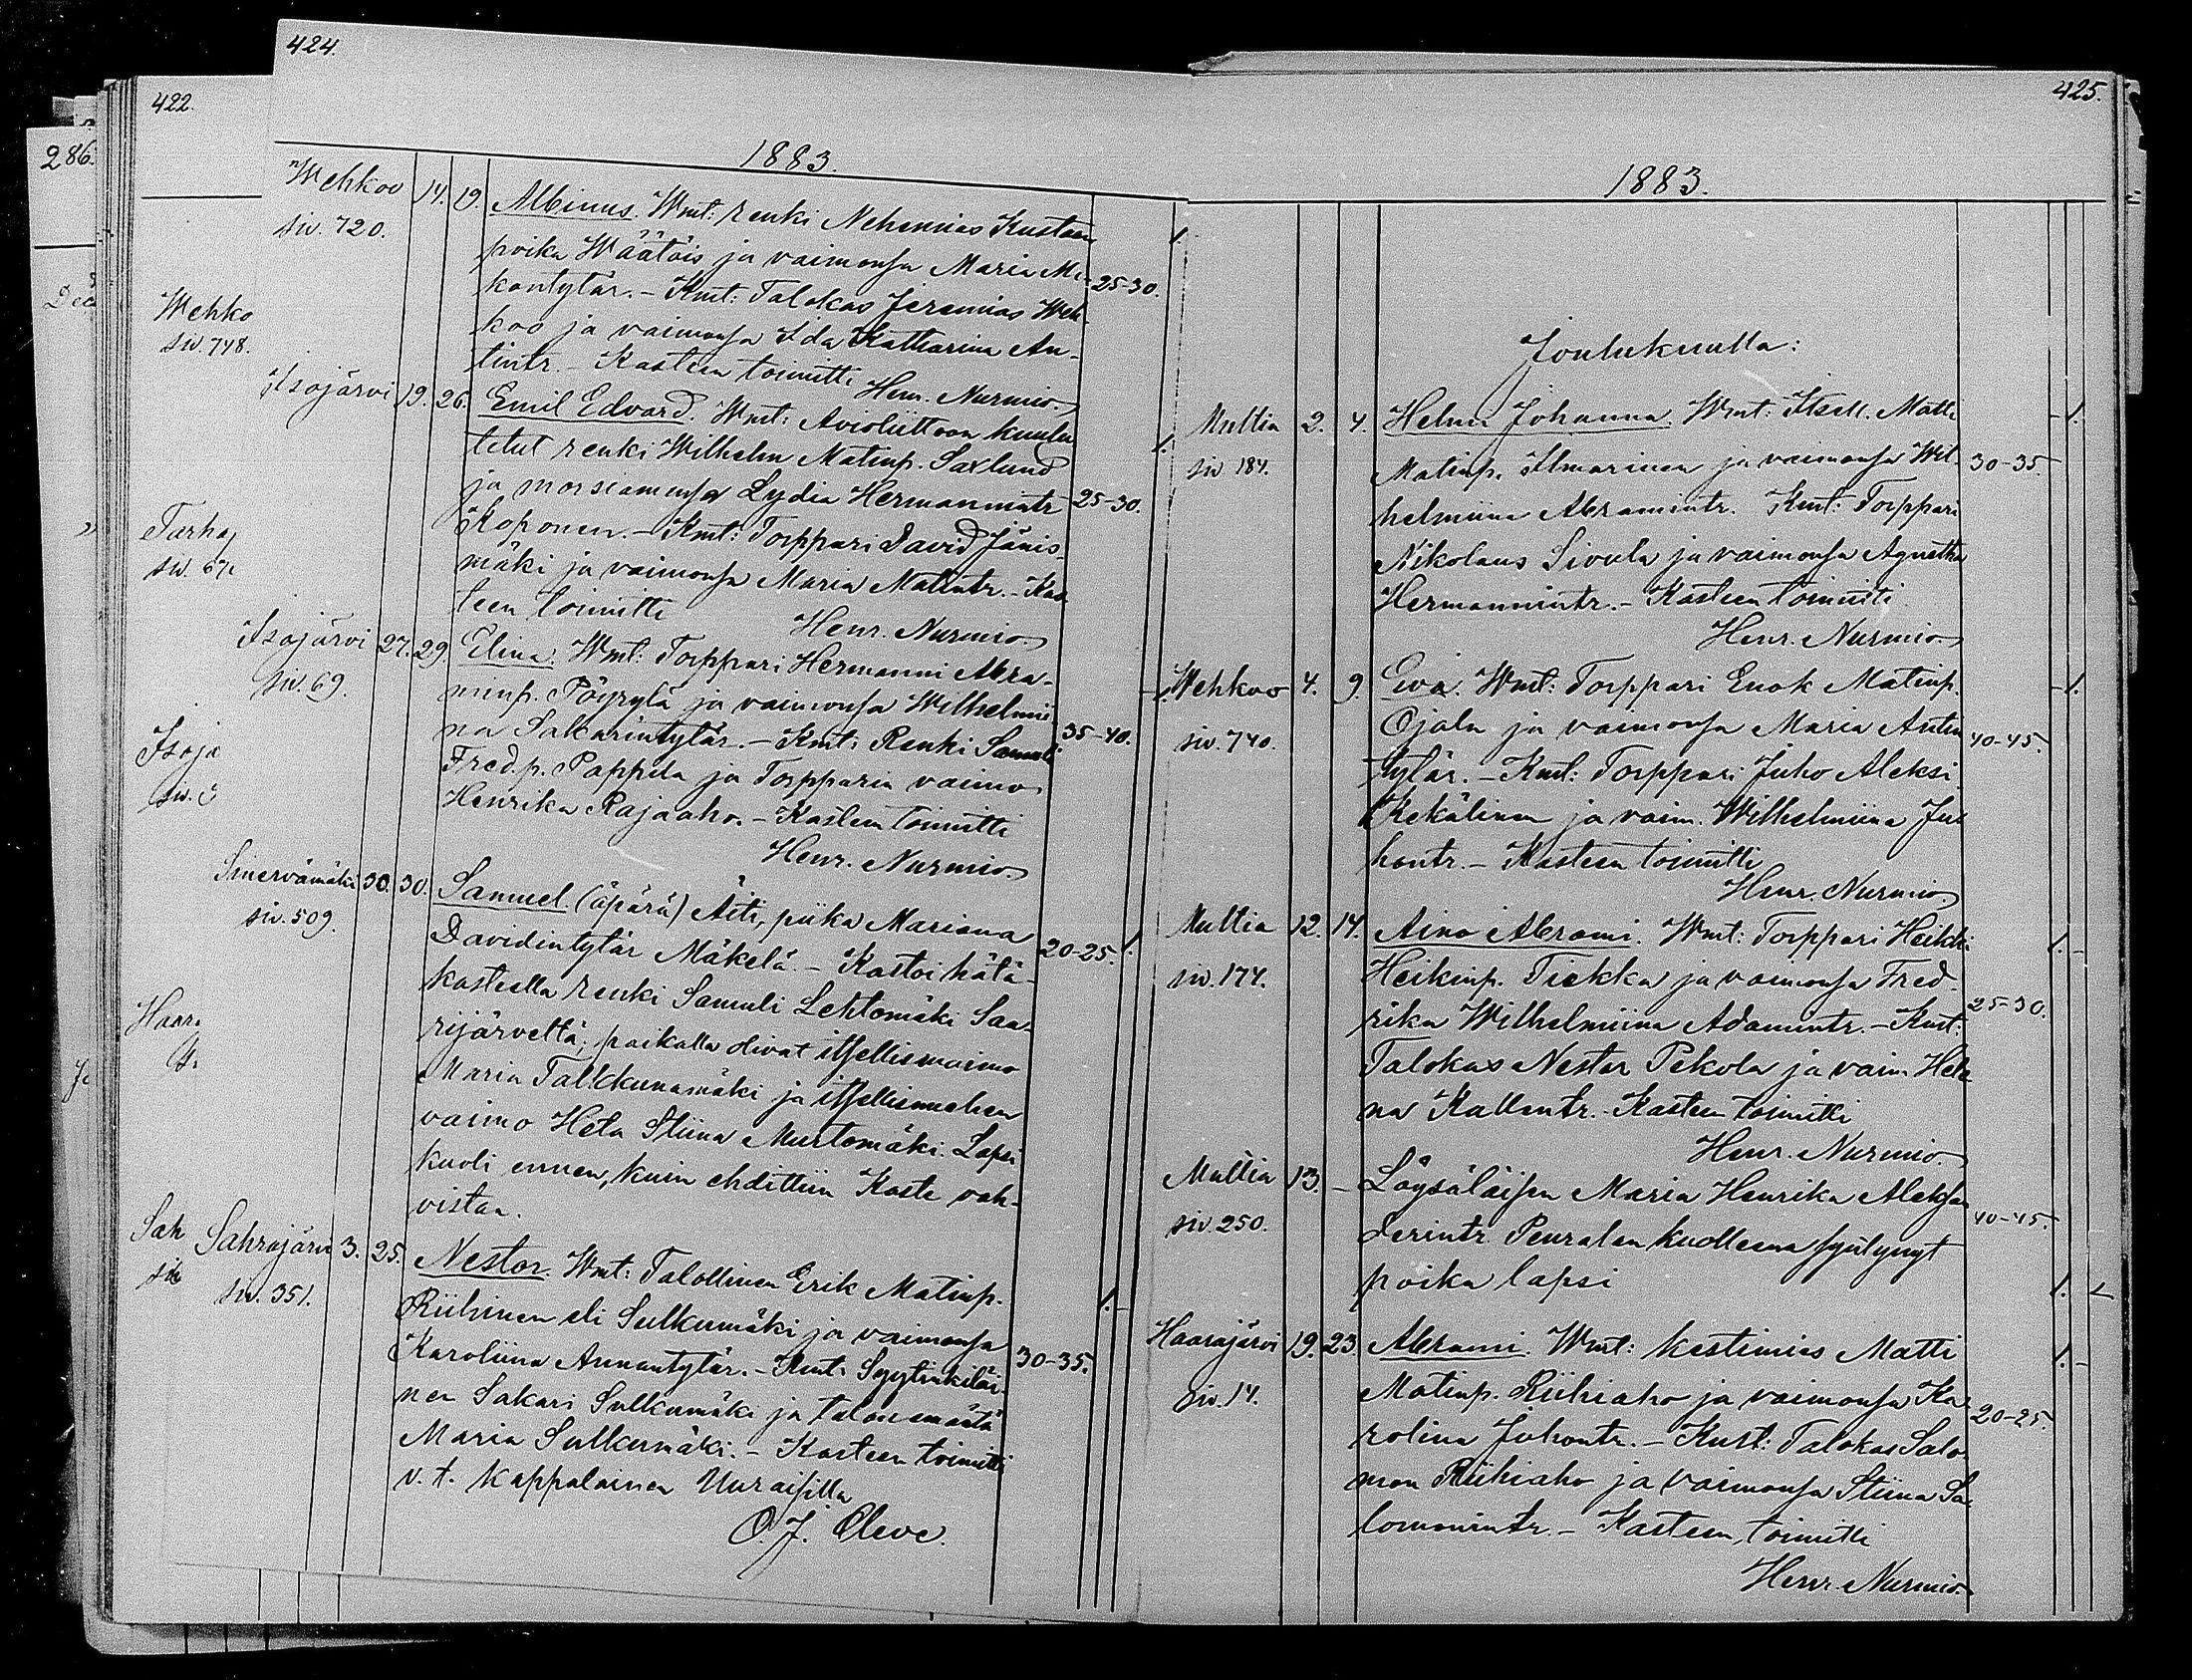 424.
1883.
Wehkoo 14. 19. Albinus. Wmt: renki Nehemias Kustaan
siv. 720. poika Wäätäis ja vaimonsa Maria Mi- 25-30. 1.
kontytär. - Kmt: Talokas Jeremias Weh-
koo ja vaimonsa Ida Katharina An-
tintr. - Kasteen toimitti
Henr. Nurmio.
Isojärvi 19. 26. Emil Edvard. Wmt: Avioliittoon kuulu
tetut renki Wilhelm Matinp. Saxlund 1.
ja morsiamensa Lydia Hermannintr 25-30.
Koponen. - Kmt: Torppari David Jänis-
mäki ja vaimonsa Maria Matintr. - Kas
teen toimitti
Henr. Nurmio.
Isojärvi 27. 29. Elina. Wmt: Torppari Hermanni Abra-
siv. 69. minp. Pöyrylä ja vaimonsa Wilhelmii 1.
na Sakarintytär. - Kmt: Renki Samuli 35-40.
Fred.p. Pappila ja Torpparin vaimo
Henrika Rajaaho. - Kasteen toimitti
Henr. Nurmio.
Sinervämäki 30. 30. Samuel (äpärä) Äiti, piika Mariana
siv. 509. Davidintytär Mäkelä. - Kastoi hätä- 20-25. 1.
kasteella renki Samuli Lehtomäki Saa-
rijärveltä; paikalla olivat itsellisvaimo
Maria Talkkunamäki ja itsellismiehen
vaimo Heta Stiina Murtomäki. Lapsi
kuoli ennen, kuin ehdittiin Kaste vah-
vistaa.
Sahrajärvi 3. 25. Nestor. Wmt: Talollinen Erik Matinp.
siv. 351. Riihinen eli Sulkumäki ja vaimonsa 1.-
Karoliina Annantytär. - Kmt: Syytinkiläi- 30-35.
nen Sakari Sulkumäki ja talon emäntä
Maria Sulkumäki. - Kasteen toimitti
v. t. Kappalainen Uuraisilla
O. J. Cleve.
422.
286.
Wehko
siv. 748.
Isoja
Haar
Sah
425.
1883.
Joulukuulla:
Multia 2. 4. Helma Johanna. Wmt: Itsell. Matti -1.
siv 184. Matinp. Ilmarinen ja vaimonsa Wil- 30-35
helmiina Abramintr. Kmt: Torppari
Nikolaus Sivula ja vaimonsa Agnetha
Hermannintr. - Kasteen toimitti
Henr. Nurmio.
Wehkoo 4. 9. Eva. Wmt: Torppari Enok Matinp. -1.
siv. 740. Ojala ja vaimonsa Maria Antin 40-45.
tytär. - Kmt: Torppari Juho Aleksi
Kekälinen ja vaim. Wilhelmiina Ju-
hontr. - Kasteen toimitti
Henr. Nurmio.
Multia 12. 14. Aino Abrami. Wmt: Torppari Heikki 1.-
siv. 174. Heikinp. Tiekka ja vaimonsa Fred- 25-30.
rika Wilhelmiina Adamintr. - Kmt:
Talokas Nestor Pekola ja vaim. Hele
na Kallentr. - Kasteen toimitti
Henr. Nurmio.
Multia 13. - Löysäläisen Maria Henrika Aleksan
siv 250. derintr. Peuralan kuolleena syntynyt 40-45.
poika lapsi 1.
Haarajärvi 19. 23. Abrami. Wmt: kestimies Matti 1.-
siv. 14. Matinp. Riihiaho ja vaimonsa Ka- 20-25.
rolina Juhontr. - Kmt: Talokas Salo-
mon Riihiaho ja vaimonsa Stiina Sa-
lomonintr. - Kasteen toimitti
Henr. Nurmio.